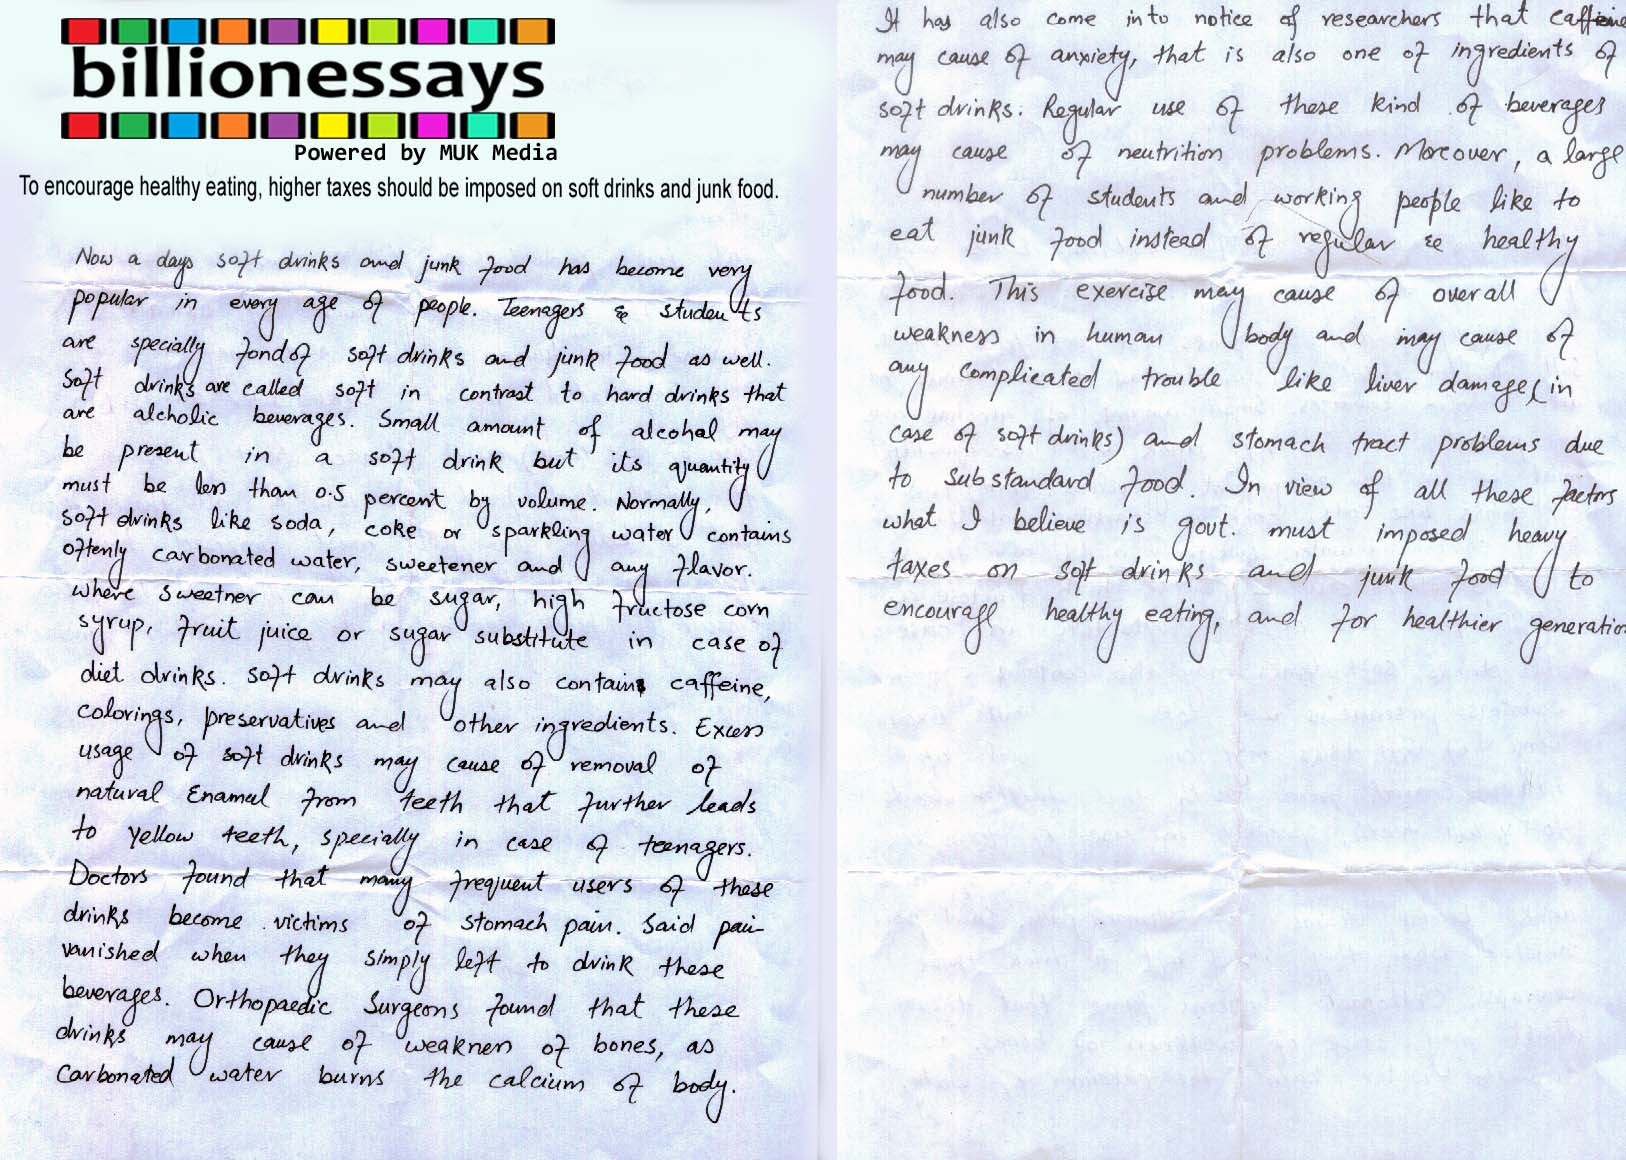 billionessays
Powered by MUK Media
To encourage healthy eating, higher taxes should be imposed on soft drinks and junk food.
Now a days soft drinks and junk food has become very
popular in every age of people. Teenagers & students
are specially fond of soft drinks and junk food as well.
Soft drinks are called soft in contrast to hard drinks that
are alcholic beverages. Small amount of alcohal may
be present in a soft drink but its quantity
must be less than 0.5 percent by volume. Normally,
soft drinks like soda, coke or sparkling water contains
oftenly carbonated water, sweetener and any flavor.
where sweetner can be sugar, high fructose corn
syrup, fruit juice or sugar substitute in case of
diet drinks. soft drinks may also contains caffeine,
colorings, preservatives and other ingredients. Excess
usage of soft drinks may cause of removal of
natural Enamel from teeth that further leads
to yellow teeth, specially in case of teenagers.
Doctors found that many frequent users of these
drinks become victims of stomach pain. Said pain
vanished when they simply left to drink these
beverages. Orthopaedic Surgeons found that these
drinks may cause of weakness of bones, as
carbonated water burns the calcium of body.
It has also come into notice of researchers that caffeine
may cause of anxiety, that is also one of ingredients of
soft drinks. Regular use of these kind of beverages
may cause of neutrition problems. Moreover, a large
number of students and working people like to
eat junk food instead of regular & healthy
food. This exercise may cause of overall
weakness in human body and may cause of
any complicated trouble like liver damage, (in
case of soft drinks) and stomach tract problems due
to substandard food. In view of all these factors
what I believe is govt. must imposed heavy
taxes on soft drinks and junk food to
encourage healthy eating, and for healthier generation